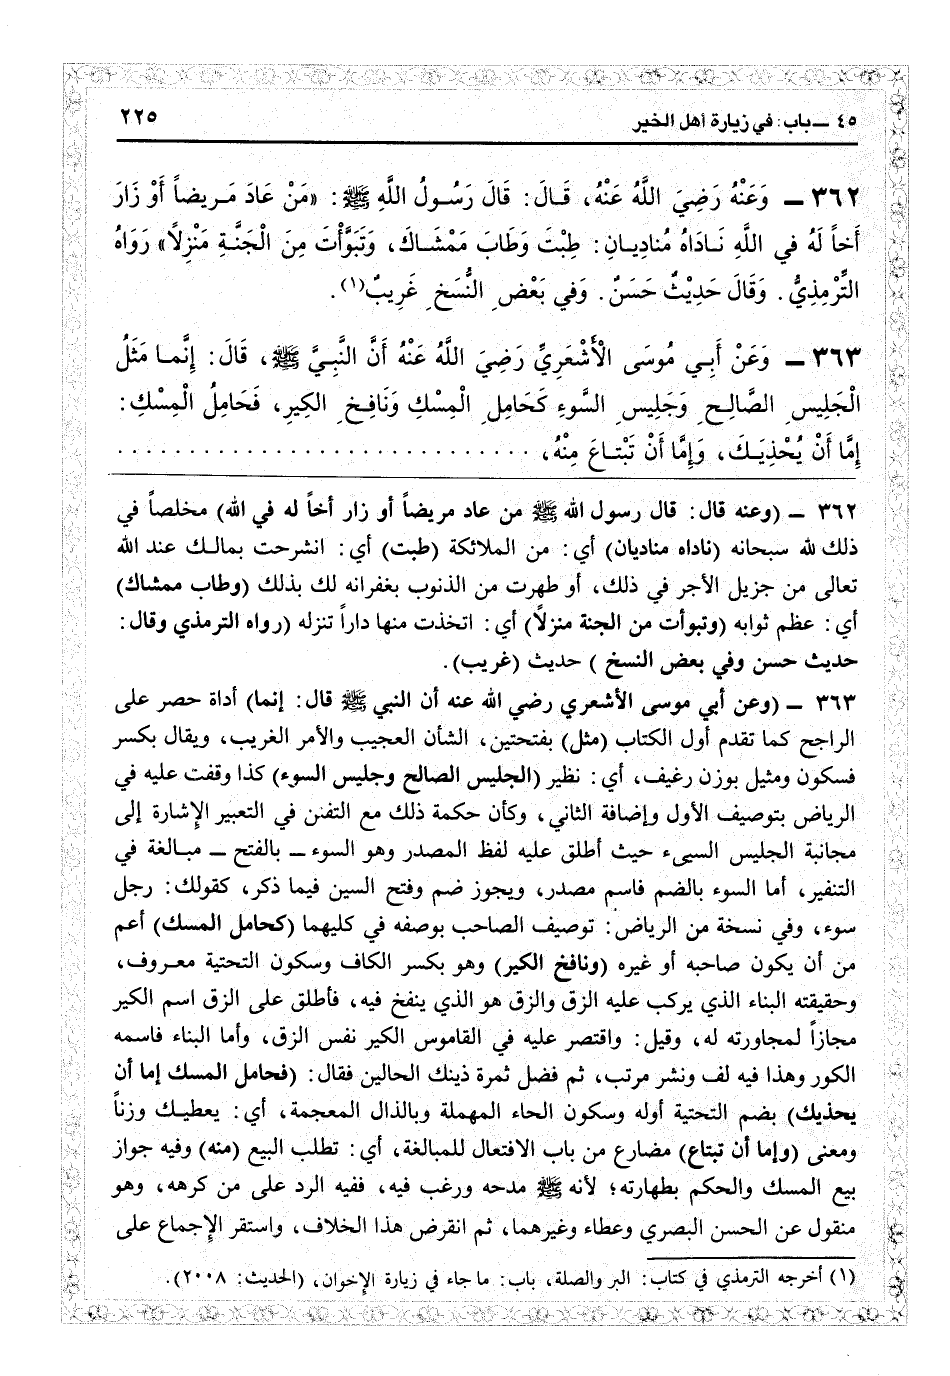 ٤٥ ــ باب: في زيارة أهل الخير
٢٢٥
٣٦٢ ــ وَعَنْهُ رَضِيَ اللَّهُ عَنْهُ، قَـالَ: قَالَ رَسُـولُ اللَّهِ ﷺ: «مَنْ عَادَ مَـرِيضاً أَوْ زَارَ
أَخاً لَهُ في اللَّهِ نَـادَاهُ مُنادِيـانِ: طِبْتَ وَطَابَ مَمْشَاكَ، وَتَبَوَّأْتَ مِنَ الْجَنَّـةِ مَنْزِلًا» رَوَاهُ
التِّرْمِذِيُّ. وَقَالَ حَدِيْثٌ حَسَنٌ. وَفي بَعْضِ النُّسَخِ غَرِيبٌ(١).
٣٦٣ ــ وَعَنْ أَبِـي مُوسَى الْأَشْعَرِيِّ رَضِيَ اللَّهُ عَنْهُ أَنَّ النَّبِـيَّ ﷺ، قَالَ: إِنَّمـا مَثَلُ
الْجَلِيسِ الصَّالِحِ وَجَلِيسِ السُّوءِ كَحَامِلِ الْمِسْكِ وَنَافِخِ الكِيرِ، فَحَامِلُ الْمِسْكِ:
إِمَّا أَنْ يُحْذِيَـكَ، وَإِمَّا أَنْ تَبْتـاعَ مِنْهُ، . . . . . . . . . . . . . . . . . . . . . . . . . . . . .
٣٦٢ ــ (وعنه قال: قال رسول الله ﷺ من عاد مريضاً أو زار أخاً له في الله) مخلصاً في
ذلك لله سبحانه (ناداه مناديان) أي: من الملائكة (طبت) أي: انشرحت بمالـك عند الله
تعالى من جزيل الأجر في ذلك، أو طهرت من الذنوب بغفرانه لك بذلك (وطاب ممشاك)
أي: عظم ثوابه (وتبوأت من الجنة منزلاً) أي: اتخذت منها داراً تنزله (رواه الترمذي وقال:
حديث حسن وفي بعض النسخ ) حديث (غريب).
٣٦٣ ــ (وعن أبي موسى الأشعري رضي الله عنه أن النبي ﷺ قال: إنما) أداة حصر على
الراجح كما تقدم أول الكتاب (مثل) بفتحتين، الشأن العجيب والأمر الغريب، ويقال بكسر
فسكون ومثيل بوزن رغيف، أي: نظير (الجليس الصالح وجليس السوء) كذا وقفت عليه في
الرياض بتوصيف الأول وإضافة الثاني، وكأن حكمة ذلك مع التفنن في التعبير الإشارة إلى
مجانبة الجليس السيىء حيث أطلق عليه لفظ المصدر وهو السوء ــ بالفتح ــ مبـالغة في
التنفير، أما السوء بالضم فاسم مصدر، ويجوز ضم وفتح السين فيما ذكر، كقولك: رجل
سوء، وفي نسخة من الرياض: توصيف الصاحب بوصفه في كليهما (كحامل المسك) أعم
من أن يكون صاحبه أو غيره (ونافخ الكير) وهو بكسر الكاف وسكون التحتية معـروف،
وحقيقته البناء الذي يركب عليه الزق والزق هو الذي ينفخ فيه، فأطلق على الزق اسم الكير
مجازاً لمجاورته له، وقيل: واقتصر عليه في القاموس الكير نفس الزق، وأما البناء فاسمه
الكور وهذا فيه لف ونشر مرتب، ثم فضل ثمرة ذينك الحالين فقال: (فحامل المسك إما أن
يحذيك) بضم التحتية أوله وسكون الحاء المهملة وبالذال المعجمة، أي: يعطيـك وزناً
ومعنى (وإما أن تبتاع) مضارع من باب الافتعال للمبالغة، أي: تطلب البيع (منه) وفيه جواز
بيع المسك والحكم بطهارته؛ لأنه ﷺ مدحه ورغب فيه، ففيه الرد على من كرهه، وهو
منقول عن الحسن البصري وعطاء وغيرهما، ثم انقرض هذا الخلاف، واستقر الإجماع على
(١) أخرجه الترمذي في كتاب: البر والصلة، باب: ما جاء في زيارة الإخوان، (الحديث: ٢٠٠٨).